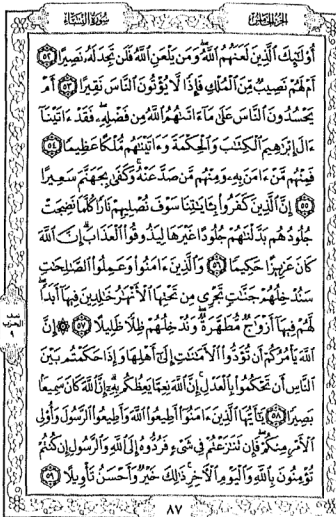 الجزء الخامس
سورة النساء
أُوْلَٰٓئِكَ ٱلَّذِينَ لَعَنَهُمُ ٱللَّهُۖ وَمَن يَلْعَنِ ٱللَّهُ فَلَن تَجِدَ لَهُۥ نَصِيرًا ٥٢
أَمْ لَهُمْ نَصِيبٌ مِّنَ ٱلْمُلْكِ فَإِذًا لَّا يُؤْتُونَ ٱلنَّاسَ نَقِيرًا ٥٣ أَمْ
يَحْسُدُونَ ٱلنَّاسَ عَلَىٰ مَآ ءَاتَىٰهُمُ ٱللَّهُ مِن فَضْلِهِۦۖ فَقَدْ ءَاتَيْنَآ
ءَالَ إِبْرَٰهِيمَ ٱلْكِتَٰبَ وَٱلْحِكْمَةَ وَءَاتَيْنَٰهُم مُّلْكًا عَظِيمًا ٥٤
فَمِنْهُم مَّنْ ءَامَنَ بِهِۦ وَمِنْهُم مَّن صَدَّ عَنْهُۚ وَكَفَىٰ بِجَهَنَّمَ سَعِيرًا
٥٥ إِنَّ ٱلَّذِينَ كَفَرُوا۟ بِـَٔايَٰتِنَا سَوْفَ نُصْلِيهِمْ نَارًا كُلَّمَا نَضِجَتْ
جُلُودُهُم بَدَّلْنَٰهُمْ جُلُودًا غَيْرَهَا لِيَذُوقُوا۟ ٱلْعَذَابَۗ إِنَّ ٱللَّهَ
كَانَ عَزِيزًا حَكِيمًا ٥٦ وَٱلَّذِينَ ءَامَنُوا۟ وَعَمِلُوا۟ ٱلصَّٰلِحَٰتِ
سَنُدْخِلُهُمْ جَنَّٰتٍ تَجْرِى مِن تَحْتِهَا ٱلْأَنْهَٰرُ خَٰلِدِينَ فِيهَآ أَبَدًاۖ
لَّهُمْ فِيهَآ أَزْوَٰجٌ مُّطَهَّرَةٌۖ وَنُدْخِلُهُمْ ظِلًّا ظَلِيلًا ٥٧ إِنَّ
ٱللَّهَ يَأْمُرُكُمْ أَن تُؤَدُّوا۟ ٱلْأَمَٰنَٰتِ إِلَىٰٓ أَهْلِهَا وَإِذَا حَكَمْتُم بَيْنَ
ٱلنَّاسِ أَن تَحْكُمُوا۟ بِٱلْعَدْلِۚ إِنَّ ٱللَّهَ نِعِمَّا يَعِظُكُم بِهِۦٓۗ إِنَّ ٱللَّهَ كَانَ سَمِيعًۢا
بَصِيرًا ٥٨ يَٰٓأَيُّهَا ٱلَّذِينَ ءَامَنُوٓا۟ أَطِيعُوا۟ ٱللَّهَ وَأَطِيعُوا۟ ٱلرَّسُولَ وَأُو۟لِى
ٱلْأَمْرِ مِنكُمْۖ فَإِن تَنَٰزَعْتُمْ فِى شَىْءٍ فَرُدُّوهُ إِلَى ٱللَّهِ وَٱلرَّسُولِ إِن كُنتُمْ
تُؤْمِنُونَ بِٱللَّهِ وَٱلْيَوْمِ ٱلْأَخِرِۚ ذَٰلِكَ خَيْرٌ وَأَحْسَنُ تَأْوِيلًا ٥٩
نصف
الحزب
٩
٨٧